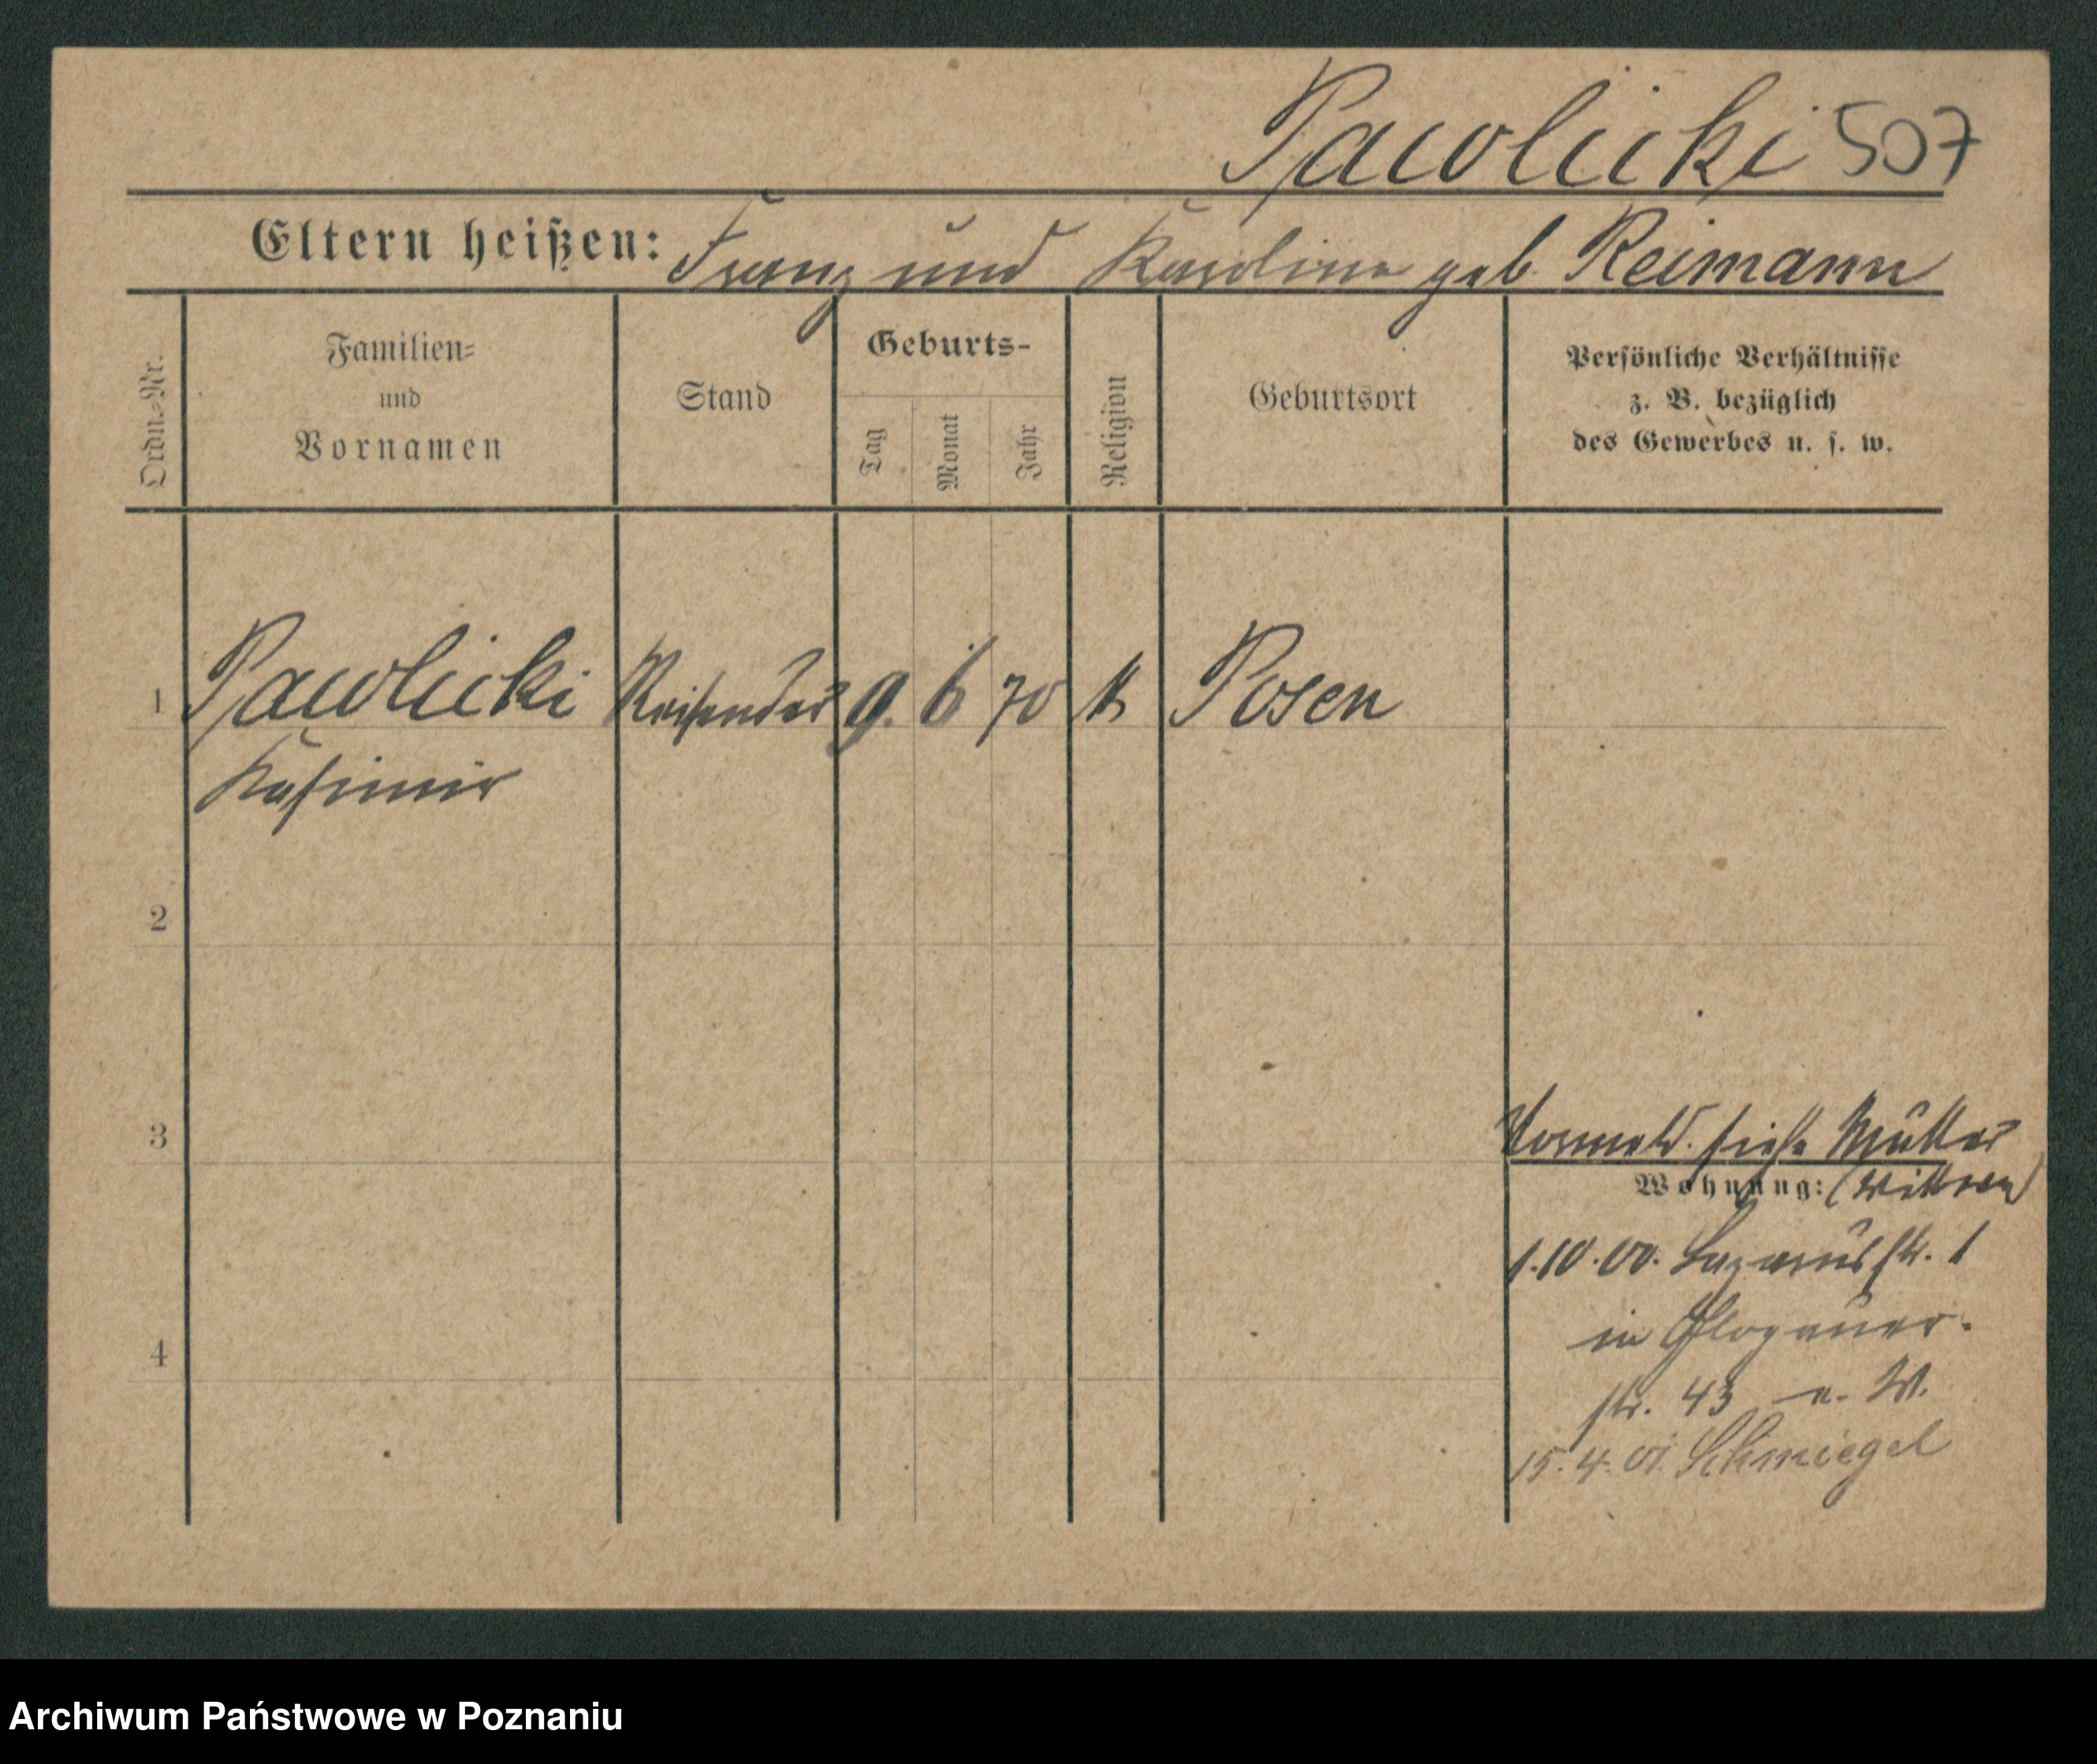 Pawlicki 507
Eltern heißen: Franz und Karoline geb. Reimann
Ordn.-Nr.
Familien-
und
Vornamen
Stand
Geburts-
Tag
Monat
Jahr
Religion
Geburtsort
Persönliche Verhältnisse
z. B. bezüglich
des Gewerbes u. s. w.
1 Pawlicki Reisender 9. 6 70 k Posen
Kasimir
2
3
Vormeld. siehe Mutter
Wohnung: (Wittwe)
1.10.00. Lazarusstr. 1
in Glogauer-
str. 43 n. W.
15.4.01. Schmiegel
4
Archiwum Państwowe w Poznaniu